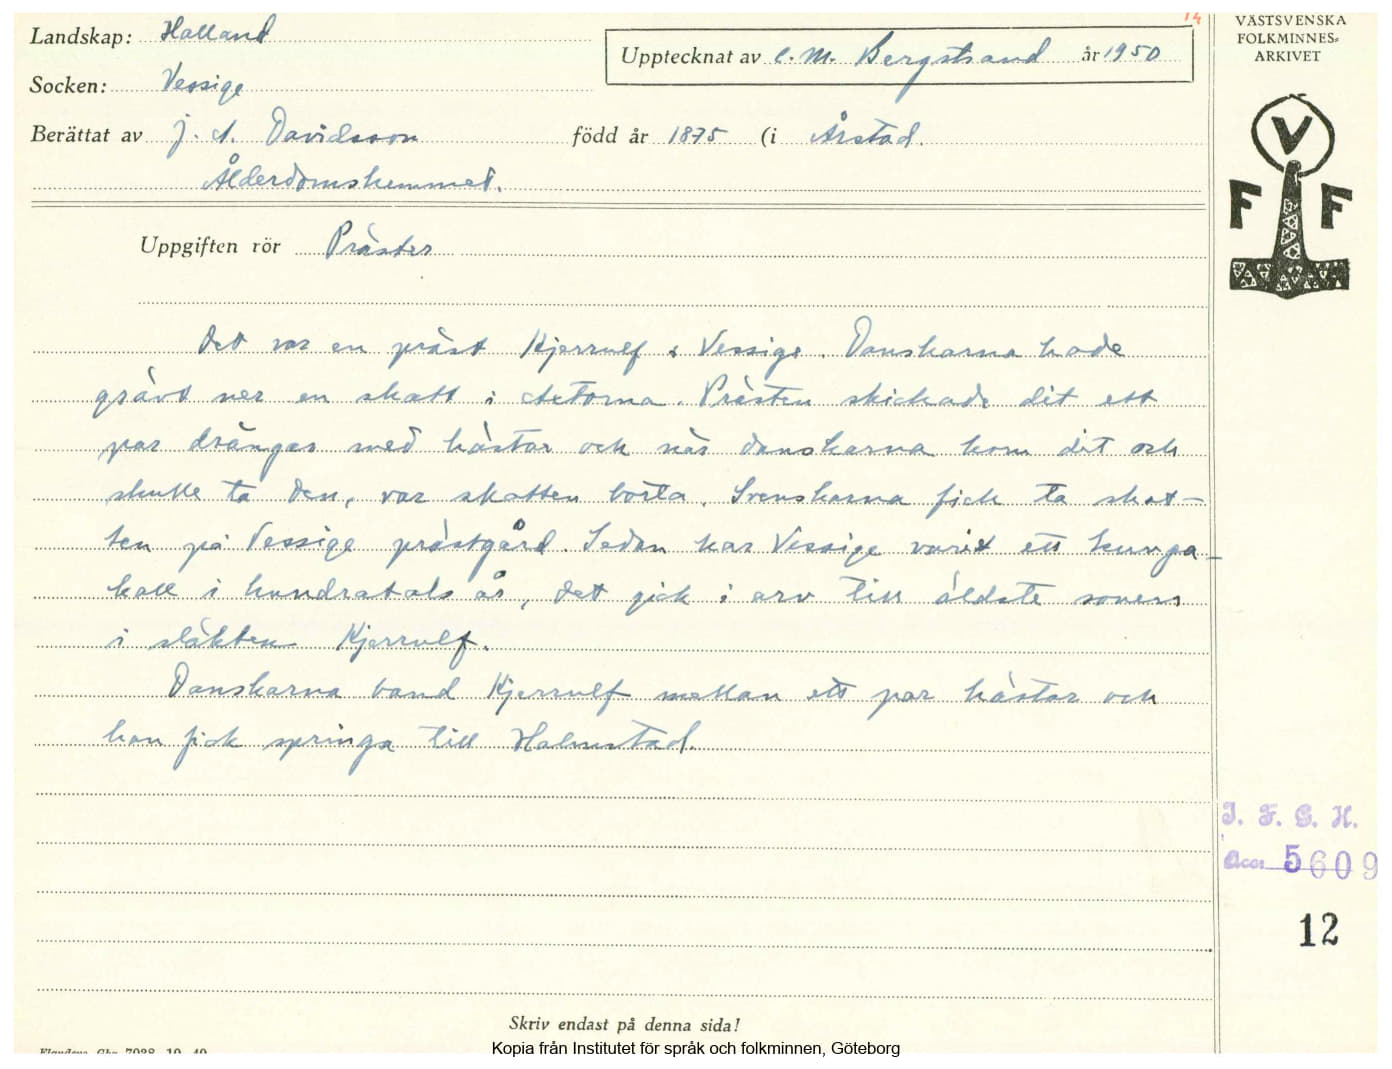 14
VÄSTSVENSKA
FOLKMINNES-
ARKIVET
Landskap: Halland
Upptecknat av C. M. Bergstrand år 1950
Socken: Vessige
Berättat av J. A. Davidsson född år 1875 (i Årstad.
Ålderdomshemmet.
V
F F
Uppgiften rör Präster
Det var en präst Kjerrulf i Vessige. Danskarna hade
grävt ner en skatt i Axtorna. Prästen skickade dit ett
par drängar med hästar och när danskarna kom dit och
skulle ta den, var skatten borta. Svenskarna fick ta skat-
ten på Vessige prästgård. Sedan har Vessige varit ett kunga-
kall i hundratals år, det gick i arv till äldste sonen
i släkten Kjerrulf.
Danskarna band Kjerrulf mellan ett par hästar och
han fick springa till Halmstad.
I. F. G. H.
Acc: 5609
12
Skriv endast på denna sida!
Kopia från Institutet för språk och folkminnen, Göteborg